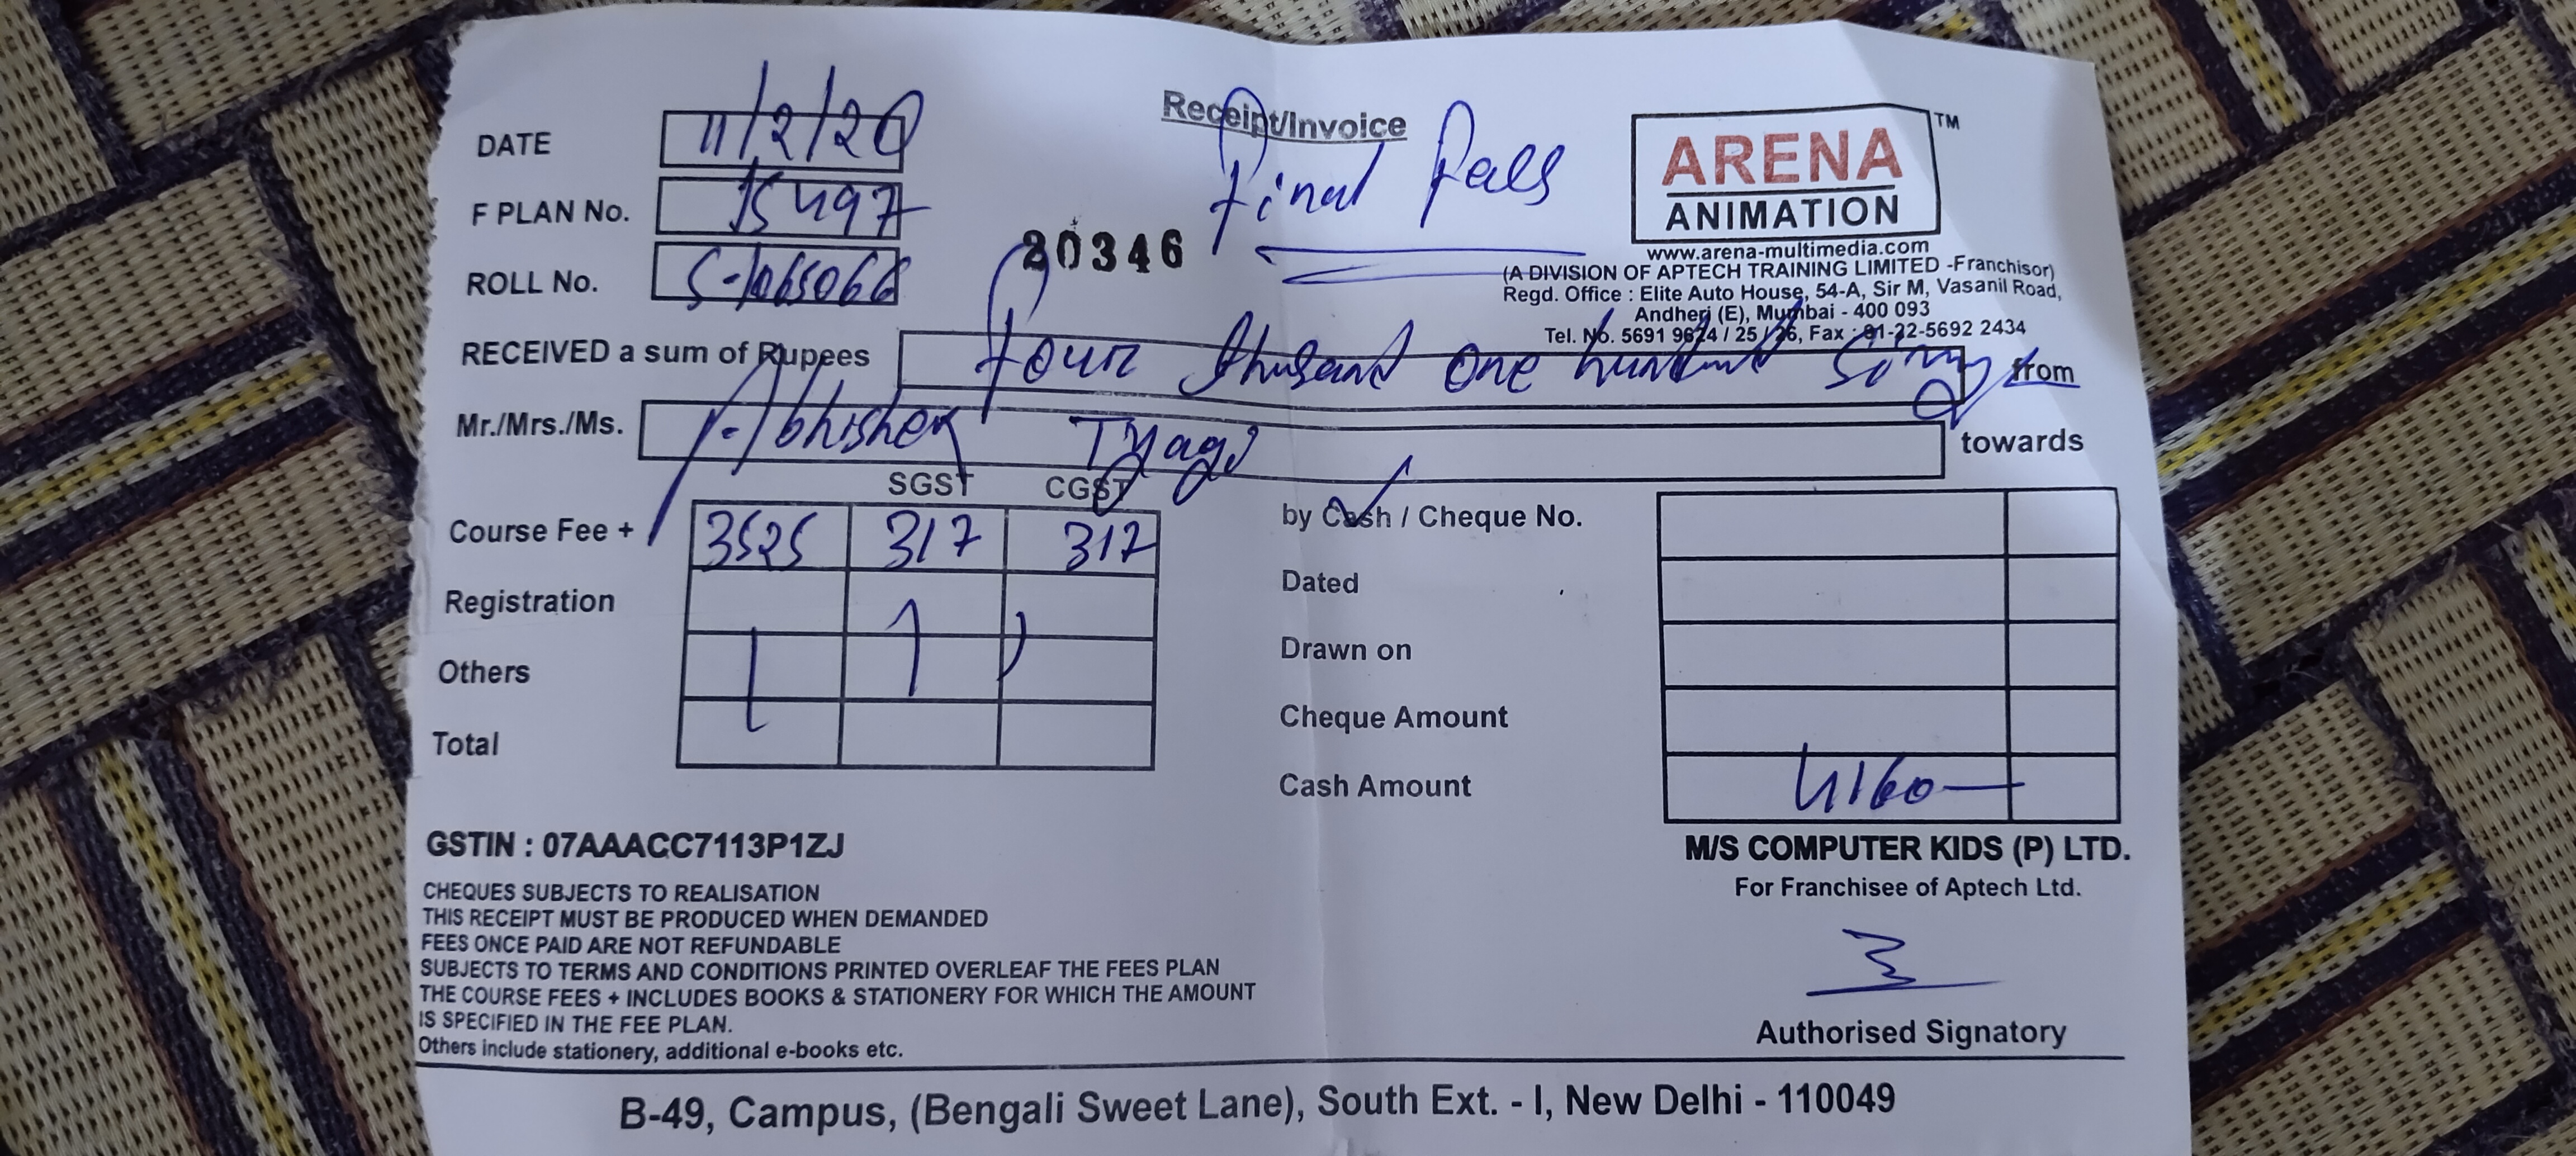 Receipt/Invoice
Final fees
DATE 11/2/20
F PLAN No. 15497
ROLL No.
20346
ARENA TM
ANIMATION
www.arena-multimedia.com
(A DIVISION OF APTECH TRAINING LIMITED -Franchisor)
Regd. Office : Elite Auto House, 54-A, Sir M, Vasanil Road,
Andheri (E), Mumbai - 400 093
Tel. No. 5691 9624 / 25 / 26, Fax : 91-22-5692 2434
RECEIVED a sum of Rupees four thusand one from
Mr./Mrs./Ms. Abhishek Tyagi towards
SGST CGST
Course Fee + 3525 317 317
Registration
Others
Total
by Cash / Cheque No.
Dated
Drawn on
Cheque Amount
Cash Amount 4160
GSTIN : 07AAACC7113P1ZJ
CHEQUES SUBJECTS TO REALISATION
THIS RECEIPT MUST BE PRODUCED WHEN DEMANDED
FEES ONCE PAID ARE NOT REFUNDABLE
SUBJECTS TO TERMS AND CONDITIONS PRINTED OVERLEAF THE FEES PLAN
THE COURSE FEES + INCLUDES BOOKS & STATIONERY FOR WHICH THE AMOUNT
IS SPECIFIED IN THE FEE PLAN.
Others include stationery, additional e-books etc.
M/S COMPUTER KIDS (P) LTD.
For Franchisee of Aptech Ltd.
Authorised Signatory
B-49, Campus, (Bengali Sweet Lane), South Ext. - I, New Delhi - 110049